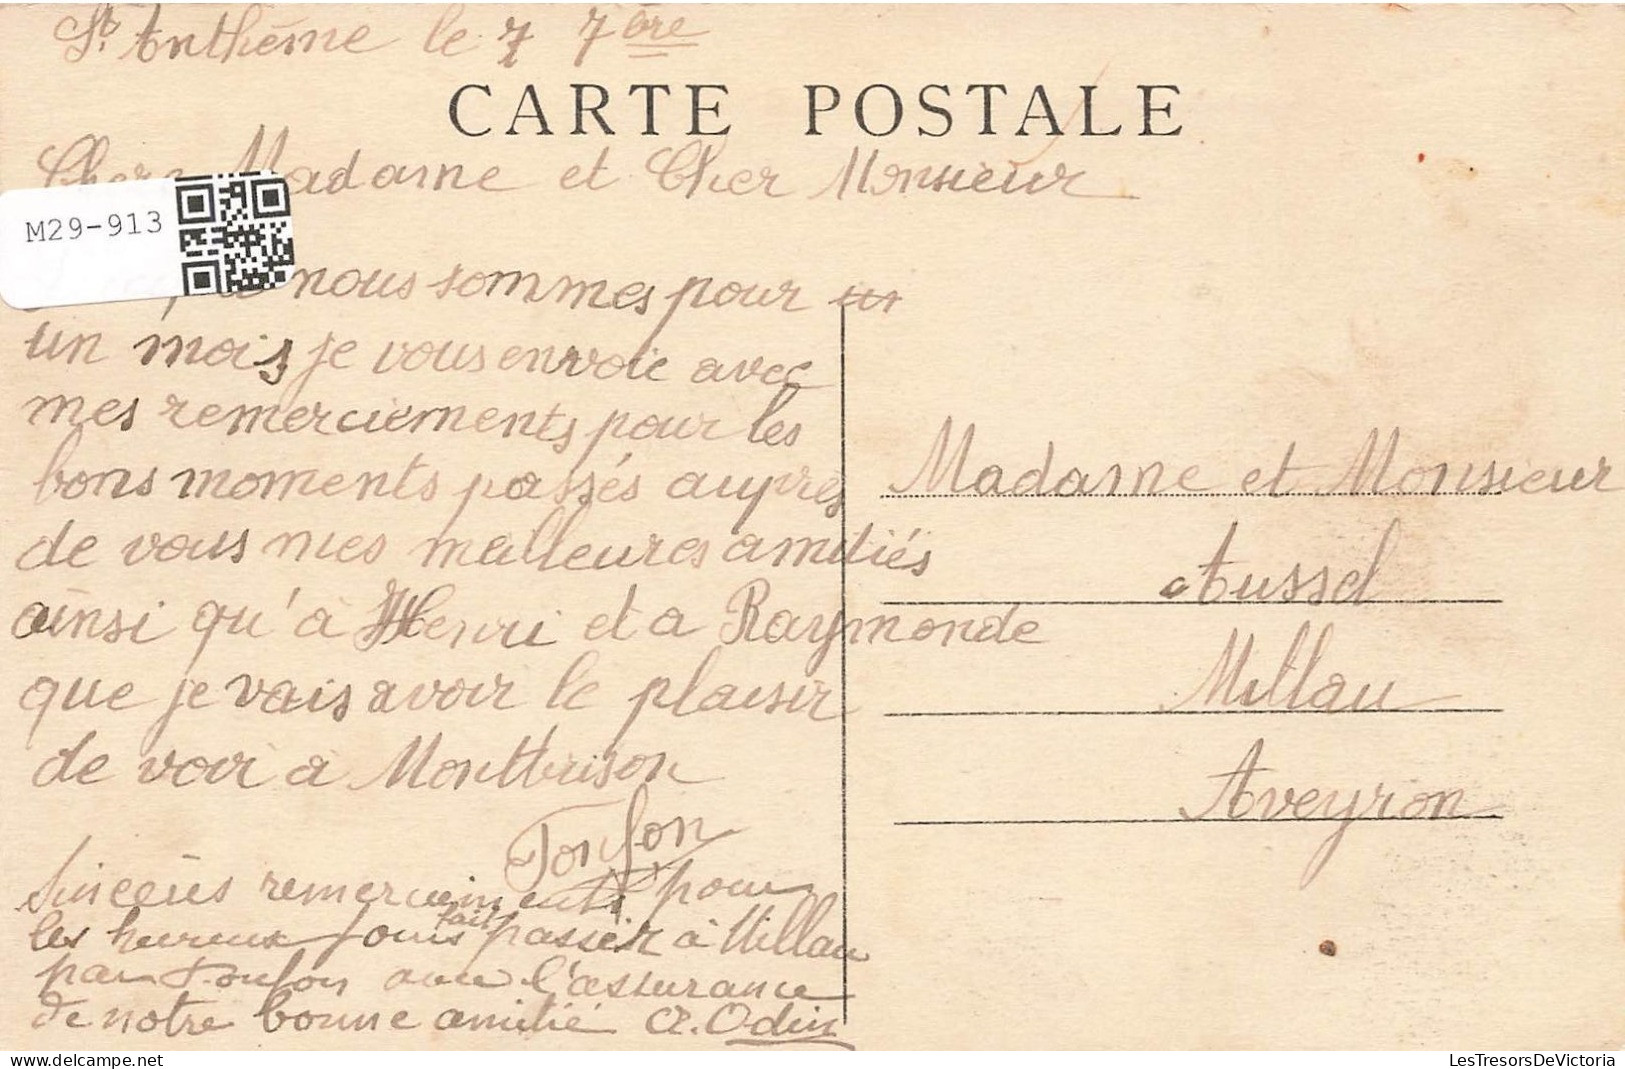 St Anthème le 7 7bre
CARTE POSTALE
Chers Madame et Cher Monsieur
M29-913
nous sommes pour
un mois je vous envoie avec
mes remerciements pour les
bons moments passés auprès
de vous mes meilleures amitiés
ainsi qu'à Henri et a Raymonde
que je vais avoir le plaisir
de voir à Montbrison
Fonfon
Sincères remerciements pour
les heureux jours fait passer à Millau
par Fonfon avec l'assurance
de notre bonne amitié A. Odin
Madame et Monsieur
Aussel
Millau
Aveyron
LesTresorsDeVictoria